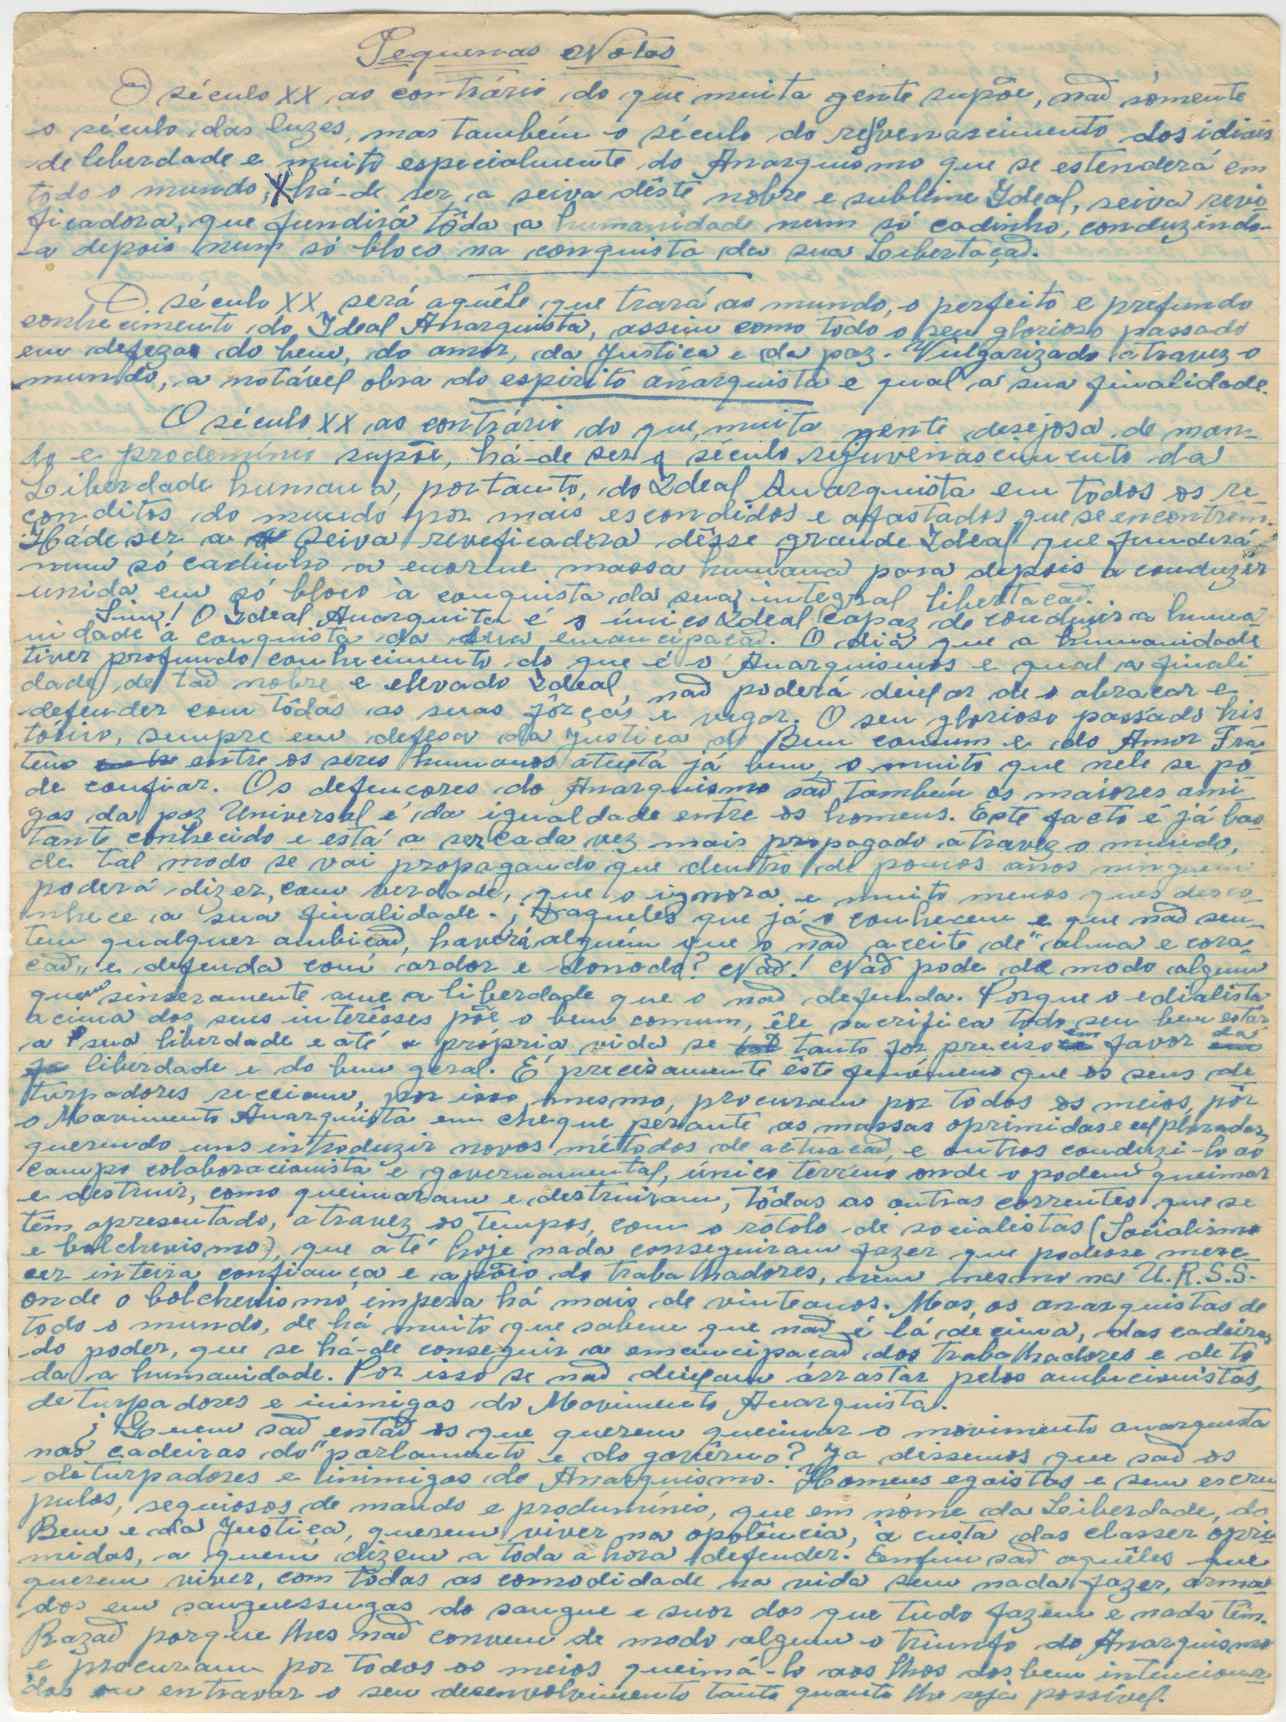 Pequenas Notas
O século XX ao contrário do que muita gente supõe, não sómente
o século das luzes, mas também o século do rejuvenascimento dos idiais
de liberdade e muito especialmente do Anarquismo que se estenderá em
todo o mundo, há-de ser a seiva dêste nobre e sublime Ideal, seiva revi-
ficadora, que fundirá tôda a humanidade num só cadinho, conduzindo-
-a depois num só bloco na conquista da sua Libertação.
O século XX será aquêle que trará ao mundo, o perfeito e profundo
conhecimento do Ideal Anarquista, assim como todo o seu glorioso passado
em defeza do bem, do amor, da Justiça e da paz. Vulgarizado atravez o
mundo, a notável obra do espirito anarquista e qual a sua finalidade.
O século XX ao contrário do que muita gente desejosa de man-
do e prodeminio supõe, há-de ser o século rejuvenascimento da
Liberdade humana, portanto, do Ideal Anarquista em todos os re-
conditos do mundo por mais escondidos e afastados que se encontrem.
Háde ser a seiva revificadora dêsse grande Ideal que funderá
num só cadinho a enorme massa humana para depois a conduzir
unida em só bloco à conquista da sua integral libertação.
Sim! O Ideal Anarquita é o único Ideal capaz de conduzir a huma
nidade á conquista da sua emancipação. O dia que a humanidade
tiver profundo conhecimento do que é o Anarquismos e qual a finali
dade, de tão nobre e elevado Ideal, não poderá deixar de o abraçar e
defender com tôdas as suas forças e vigor. O seu glorioso passado his
torico, sempre em defesa da Justiça do Bem comum e do Amor Fra
terno entre os seres humanos atesta já bem o muito que nele se po
de confiar. Os defencores do Anarquismo são também os maiores ami
gos da paz Universal e da igualdade entre os homens. Este facto é já bas
tante conhecido e está a ser cada vez mais propagado atravez o mundo,
de tal modo se vai propagando que dentro de poucos anos ninguem
poderá dizer, com verdade, que o ignora e muito menos que desco
nhece a sua finalidade. Daqueles que já o conhecem e que não sen-
tem qualquer ambição, haverá alguém que o não aceite de "alma e cora
ção" e defenda com ardor e denodo? Não! Não pode de modo algum
quem sinseramente ame a liberdade que o não defenda. Porque o edialista
acima dos seus interêsses põe o bem comum, êle sacrifica todo seu bem estar
a sua liberdade e até a própria vida se tanto for preciso é favor da
liberdade e do bem geral. É precisamente este fenomeno que os seus de
turpadores receiam, por isso mesmo, procuram por todos os meios, pôr
o Movimento Anarquista em cheque perante as massas oprimidas e exploradas,
querendo uns introduzir novos métodos de actuação e outros conduzi-lo ao
campo colaboracionista e governamental, único terreno onde o podem queimar
e destruir, como queimaram e destruiram, tôdas as outras correntes que se
têm apresentado, atravez os tempos, com o rotolo de socialistas (Socialismo
e bolchevismo), que até hoje nada conseguiram fazer que podesse mere-
cer inteira confiança e apôio do trabalhadores, nem mesmo na U.R.S.S.
onde o bolchevismo impera há mais de vinte anos. Mas, os anarquistas de
todo o mundo, de há muito que sabem que não é lá de cima, das cadeiras
do poder, que se há-de conseguir a emancipação dos trabalhadores e de tô
da a humanidade. Por isso se não deixam árrastar pelos ambicionistas,
deturpadores e inimigos do Movimento Anarquista.
¿Quem são então os que querem queimar o movimento anarquista
nas cadeiras do "parlamento e do govêrno? Ja dissemos que são os
deturpadores e inimigos do Anarquismo. Homens egoistas e sem escru
pulos, sequiosos de mando e produminio, que em nome da Liberdade, do
Bem e da Justiça, querem viver na opolência, á custa das classes opri
midas, a quem dizem a toda a hora defender. Emfim são aquêles que
querem viver, com todas as comodidade na vida sem nada fazer, arma
dos em sanguessugas do sangue e suor dos que tudo fazem e nada têm.
Razão porque lhes não convem de modo algum o triunfo do Anarquismo
e procuram por todos os meios queimá-lo aos lhos dos bem intenciona-
dos ou entravar o seu desenvolvimento tanto quanto lhe seja possível.